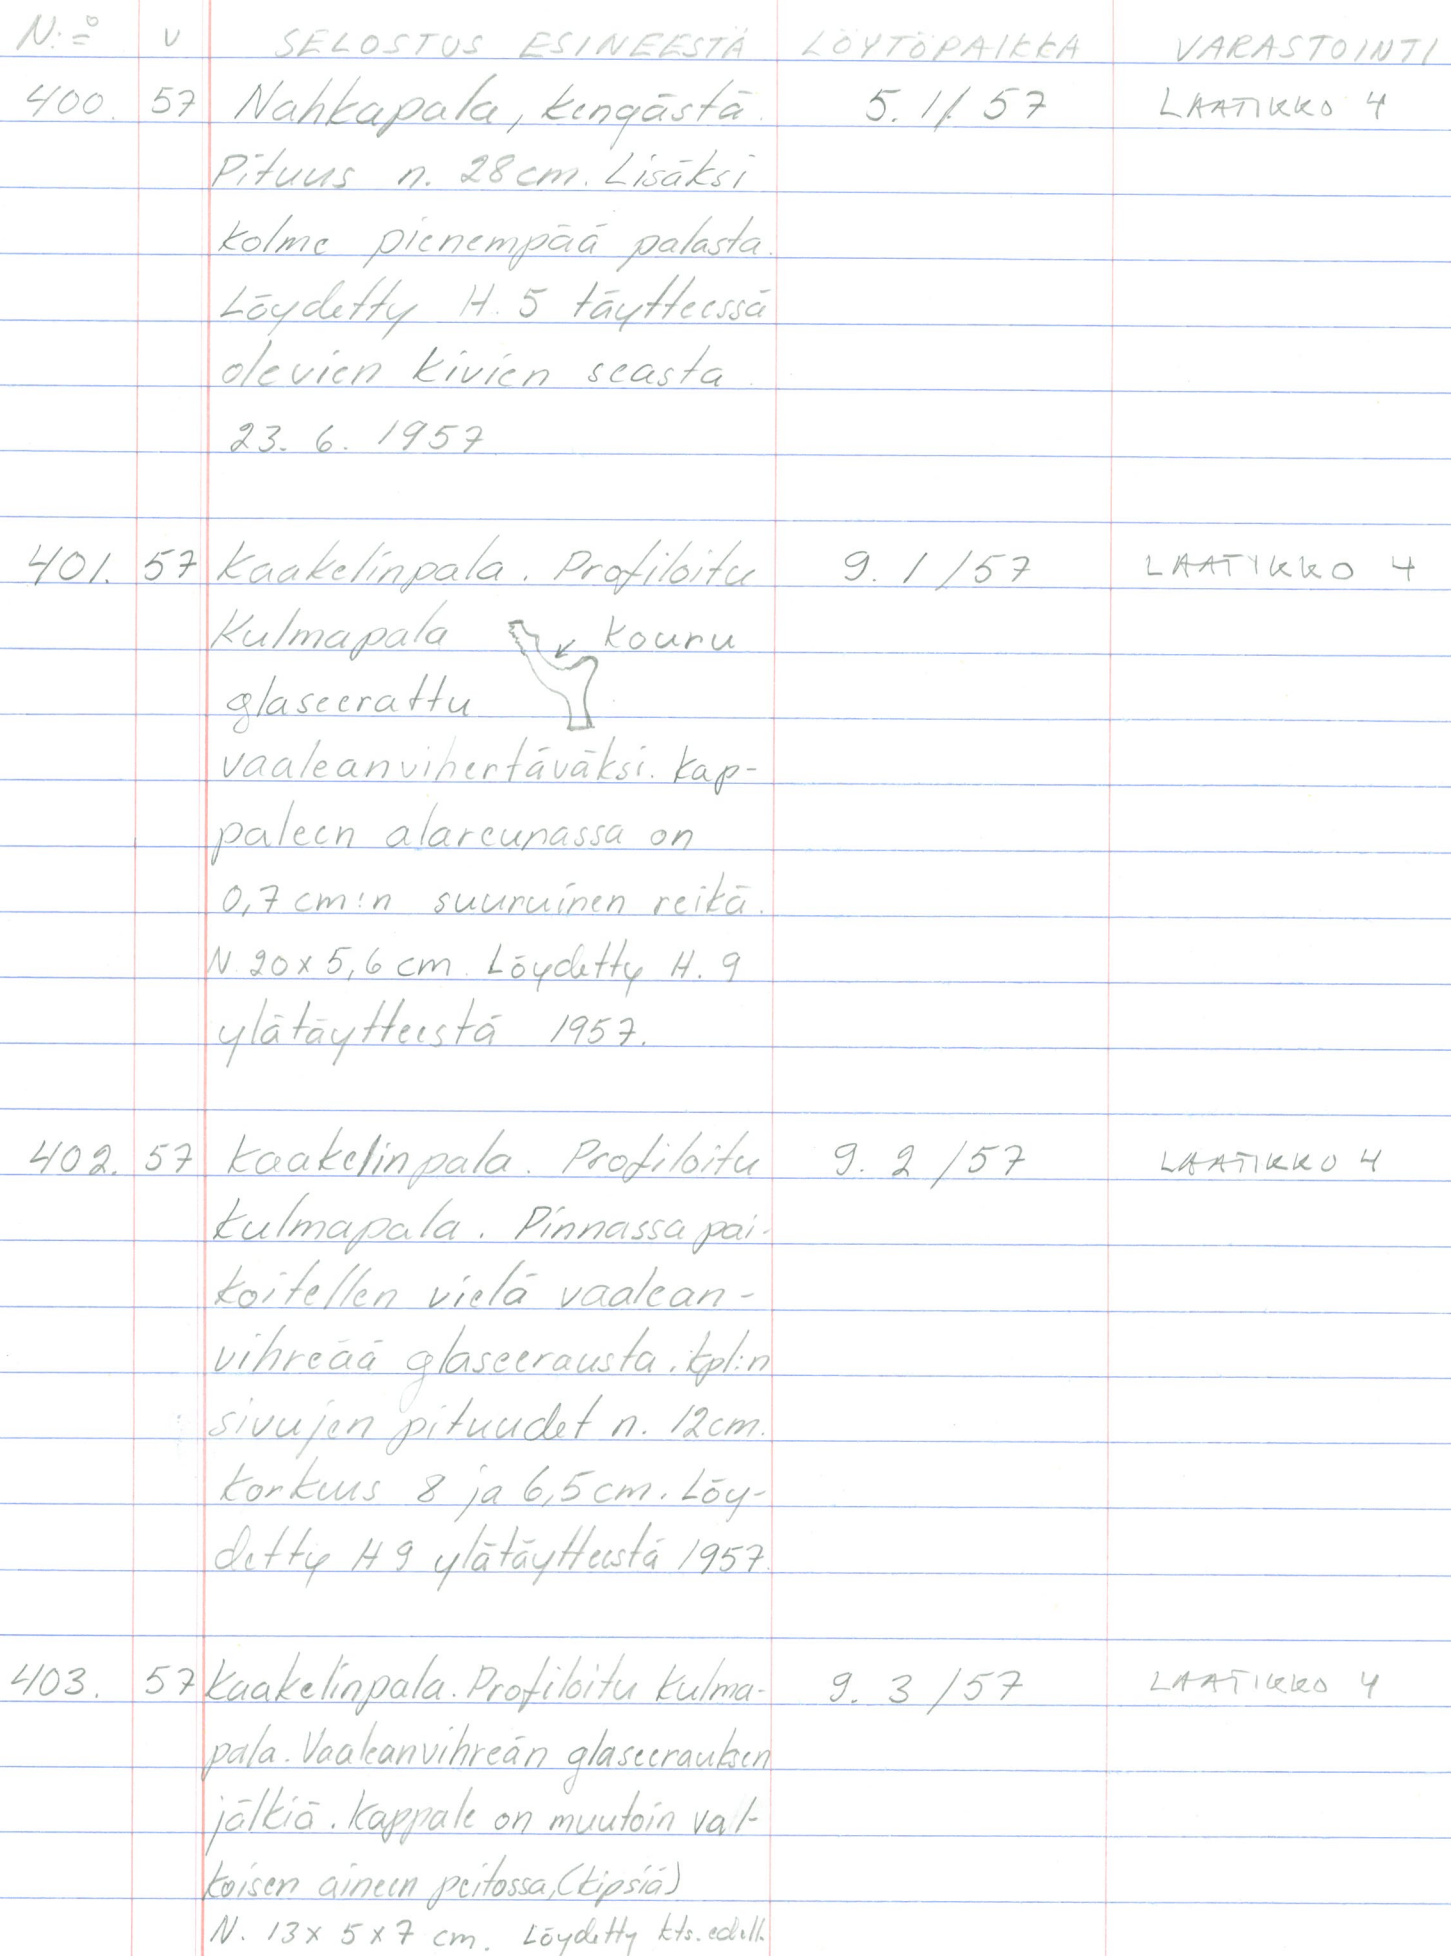 N:o V SELOSTUS ESINEESTÄ LÖYTÖPAIKKA VARASTOINTI
400. 57 Nahkapala, kengästä. 5. 1/57 LAATIKKO 4
Pituus n. 28 cm. Lisäksi
kolme pienempää palasta.
Löydetty H. 5 täytteessä
olevien kivien seasta
23. 6. 1957
401. 57 Kaakelinpala. Profiloitu 9. 1 /57 LAATIKKO 4
Kulmapala kouru
glaseerattu
vaaleanvihertäväksi. Kap-
paleen alareunassa on
0,7 cm:n suuruinen reikä.
N. 20 x 5,6 cm. Löydetty H. 9
ylätäytteestä 1957.
402. 57 Kaakelinpala. Profiloitu 9. 2 /57 LAATIKKO 4
kulmapala. Pinnassa pai-
koitellen vielä vaalean-
vihreää glaseerausta. kpl:n
sivujen pituudet n. 12 cm.
korkuus 8 ja 6,5 cm. Löy-
detty H 9 ylätäytteestä 1957.
403. 57 Kaakelinpala. Profiloitu kulma- 9. 3 /57 LAATIKKO 4
pala. Vaaleanvihreän glaseerauksen
jälkiä. Kappale on muutoin val-
koisen aineen peitossa, (kipsiä)
N. 13 x 5 x 7 cm. Löydetty kts. edell.